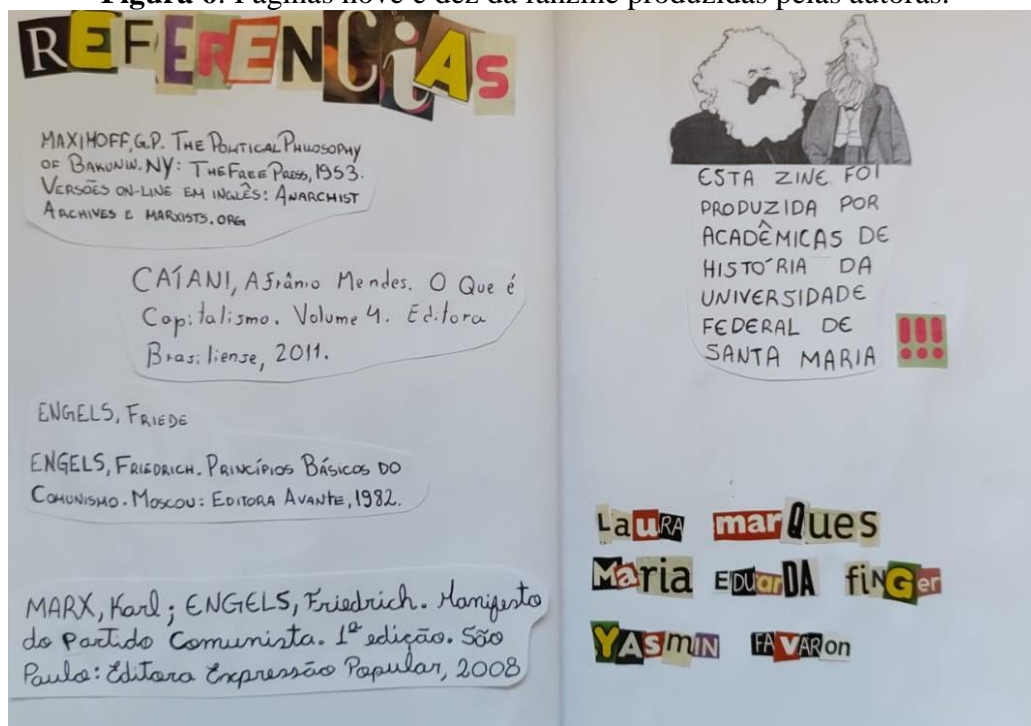 Figura 6: Páginas nove e dez da fanzine produzidas pelas autoras.
REFERENCIAS
MAXIMOFF, G.P. THE POLITICAL PHILOSOPHY
OF BAKUNIN. NY: THE FREE PRESS, 1953.
VERSÕES ON-LINE EM INGLÊS: ANARCHIST
ARCHIVES E MARXISTS.ORG
CATANI, Afrânio Mendes. O Que é
Capitalismo. Volume 4. Editora
Brasiliense, 2011.
ENGELS, FRIEDE
ENGELS, FRIEDRICH. PRINCÍPIOS BÁSICOS DO
COMUNISMO. MOSCOU: EDITORA AVANTE, 1982.
MARX, Karl; ENGELS, Friedrich. Manifesto
do Partido Comunista. 1ª edição. São
Paulo: Editora Expressão Popular, 2008
ESTA ZINE FOI
PRODUZIDA POR
ACADÊMICAS DE
HISTÓRIA DA
UNIVERSIDADE
FEDERAL DE
SANTA MARIA !!!
LauRA marQues
Maria EDUarDA fiNGer
YASmIN FAVARon